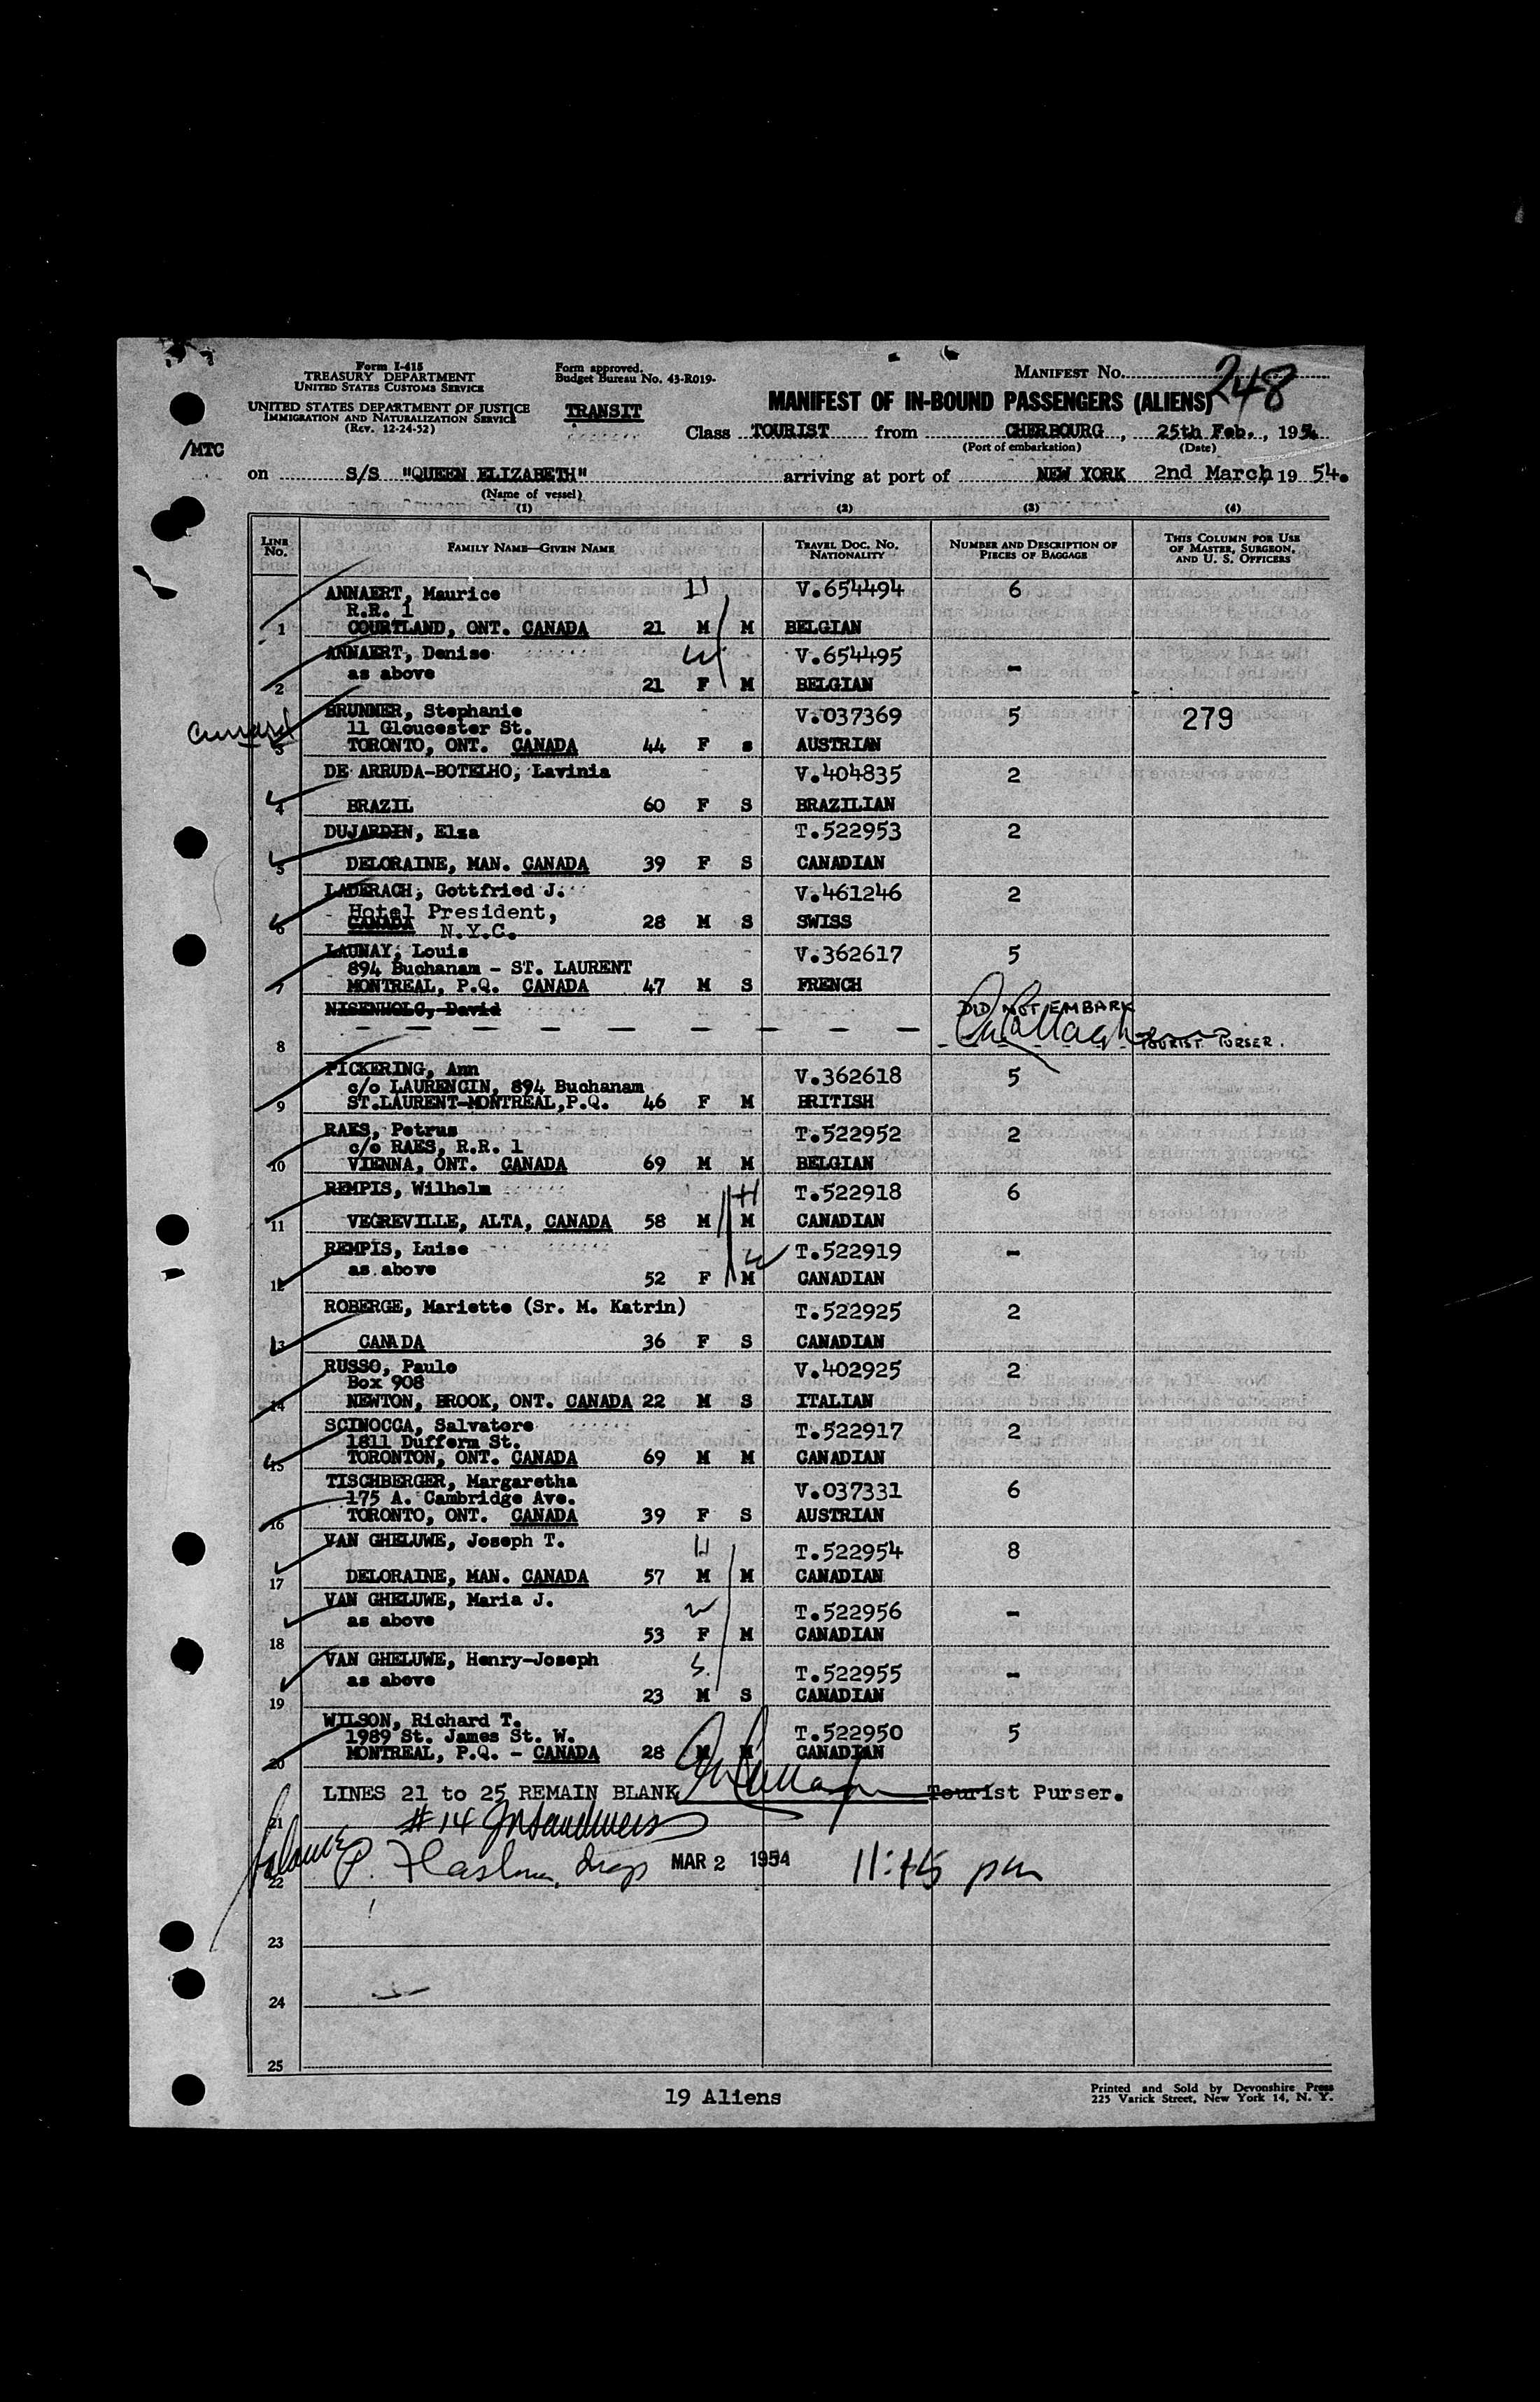 Form I-415
TREASURY DEPARTMENT
UNITED STATES CUSTOMS SERVICE
UNITED STATES DEPARTMENT OF JUSTICE
IMMIGRATION AND NATURALIZATION SERVICE
(Rev. 12-24-52)
Form approved.
Budget Bureau No. 43-R019-
TRANSIT
MANIFEST No. 248
MANIFEST OF IN-BOUND PASSENGERS (ALIENS)
/MTC
Class TOURIST from CHERBOURG, 25th Feb., 1954
(Port of embarkation) (Date)
on S/S "QUEEN ELIZABETH" arriving at port of NEW YORK 2nd March, 19 54.
(Name of vessel)
(1) (2) (3) (4)
LINE No. FAMILY NAME—GIVEN NAME TRAVEL DOC. NO. NATIONALITY NUMBER AND DESCRIPTION OF PIECES OF BAGGAGE THIS COLUMN FOR USE OF MASTER, SURGEON, AND U. S. OFFICERS
ANNAERT, Maurice H V.654494 6
R.R. 1
1 COURTLAND, ONT. CANADA 21 M M BELGIAN
ANNAERT, Denise W V.654495 -
as above
2 21 F M BELGIAN
BRUNNER, Stephanie V.037369 5 279
Cunard 11 Gloucester St.
3 TORONTO, ONT. CANADA 44 F s AUSTRIAN
DE ARRUDA-BOTELHO, Lavinia V.404835 2
4 BRAZIL 60 F S BRAZILIAN
DUJARDIN, Elsa T.522953 2
5 DELORAINE, MAN. CANADA 39 F S CANADIAN
LADERACH, Gottfried J. V.461246 2
Hotel President,
6 CANADA N.Y.C. 28 M S SWISS
LAUNAY, Louis V.362617 5
894 Buchanam - ST. LAURENT
7 MONTREAL, P.Q. CANADA 47 M S FRENCH
NISENHOLC, David DID NOT EMBARK
8 TOURIST PURSER.
PICKERING, Ann V.362618 5
c/o LAURENCIN, 894 Buchanam
9 ST.LAURENT-MONTREAL,P.Q. 46 F M BRITISH
RAES, Petrus T.522952 2
c/o RAES, R.R. 1
10 VIENNA, ONT. CANADA 69 M M BELGIAN
REMPIS, Wilhelm H T.522918 6
11 VEGREVILLE, ALTA, CANADA 58 M M CANADIAN
REMPIS, Luise W T.522919 -
as above
12 52 F M CANADIAN
ROBERGE, Mariette (Sr. M. Katrin) T.522925 2
13 CANADA 36 F S CANADIAN
RUSSO, Paulo V.402925 2
Box 908
14 NEWTON, BROOK, ONT. CANADA 22 M S ITALIAN
SCINOCCA, Salvatore T.522917 2
1811 Dufferm St.
15 TORONTON, ONT. CANADA 69 M M CANADIAN
TISCHBERGER, Margaretha V.037331 6
175 A. Cambridge Ave.
16 TORONTO, ONT. CANADA 39 F S AUSTRIAN
VAN GHELUWE, Joseph T. H T.522954 8
17 DELORAINE, MAN. CANADA 57 M M CANADIAN
VAN GHELUWE, Maria J. W T.522956 -
as above
18 53 F M CANADIAN
VAN GHELUWE, Henry-Joseph S. T.522955 -
as above
19 23 M S CANADIAN
WILSON, Richard T. T.522950 5
1989 St. James St. W.
20 MONTREAL, P.Q. - CANADA 28 M M CANADIAN
LINES 21 to 25 REMAIN BLANK Tourist Purser.
21 #14
22 balance P. MAR 2 1954 11:45 pm
23
24
25
19 Aliens
Printed and Sold by Devonshire Press
225 Varick Street, New York 14, N. Y.